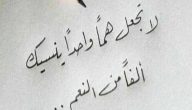 لا تجعل همًّا واحدًا ينسيك
ألفًا من النعم ..